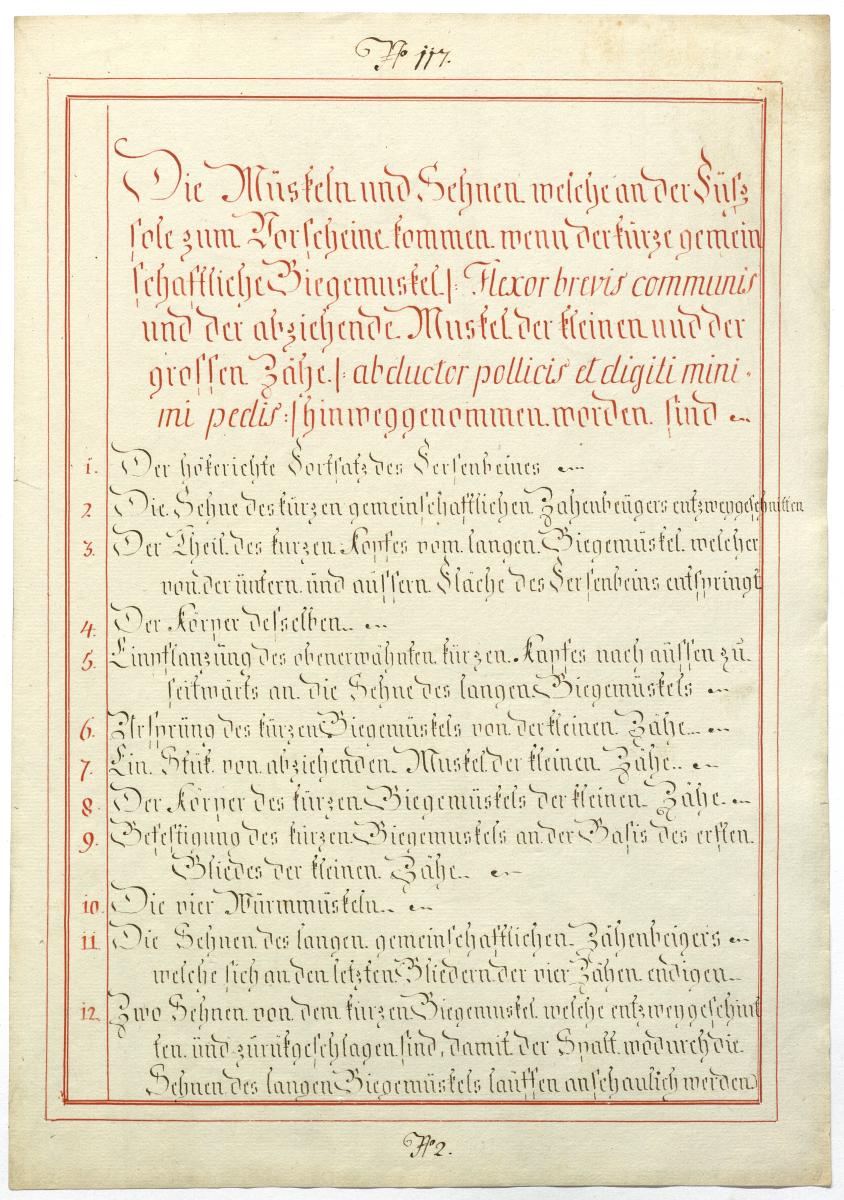 No 117.
Die Müskeln und Sehnen welche an der Füsz
sole zum Vorscheine kommen wenn der kürze gemein
schaftliche Biegemuskel |: Flexor brevis communis
und der abziehende Muskel der kleinen und der
grossen Zähe |: abductor pollicis et digiti mini-
mi pedis :| hinweggenommen worden sind
1. Der hökerichte Fortsatz des Fersenbeines
2. Die Sehne des kürzen gemeinschaftlichen Zahenbeügers entzweygeschnitten
3. Der Theil des kurzen Kopfes vom langen Biegemüskel welcher
von der üntern und aüssern Fläche des Fersenbeins entspringt
4. Der Körper desselben
5. Einpflanzüng des obenerwähnten kürzen Kopfes nach aüssen zü
seitwärts an die Sehne des langen Biegemüskels
6. Ursprüng des kürzen Biegemüskels von der kleinen Zähe
7. Ein Stük von abziehenden Muskel der kleinen Zähe
8. Der Körper des kürzen Biegemüskels der kleinen Zähe
9. Befestigung des kürzen Biegemuskels an der Basis des ersten
Gliedes der kleinen Zähe
10. Die vier Würmmüskeln
11. Die Sehnen des langen gemeinschaftlichen Zähenbeigers
welche sich an den letzten Gliedern der vier Zähen endigen
12. Zwo Sehnen von dem kürzen Biegemuskel welche entzweygeschint
ten und zürükgeschlagen sind, damit der Spalt wodurch die
Sehnen des langen Biegemüskels lauffen anschaulich werden
No 2.